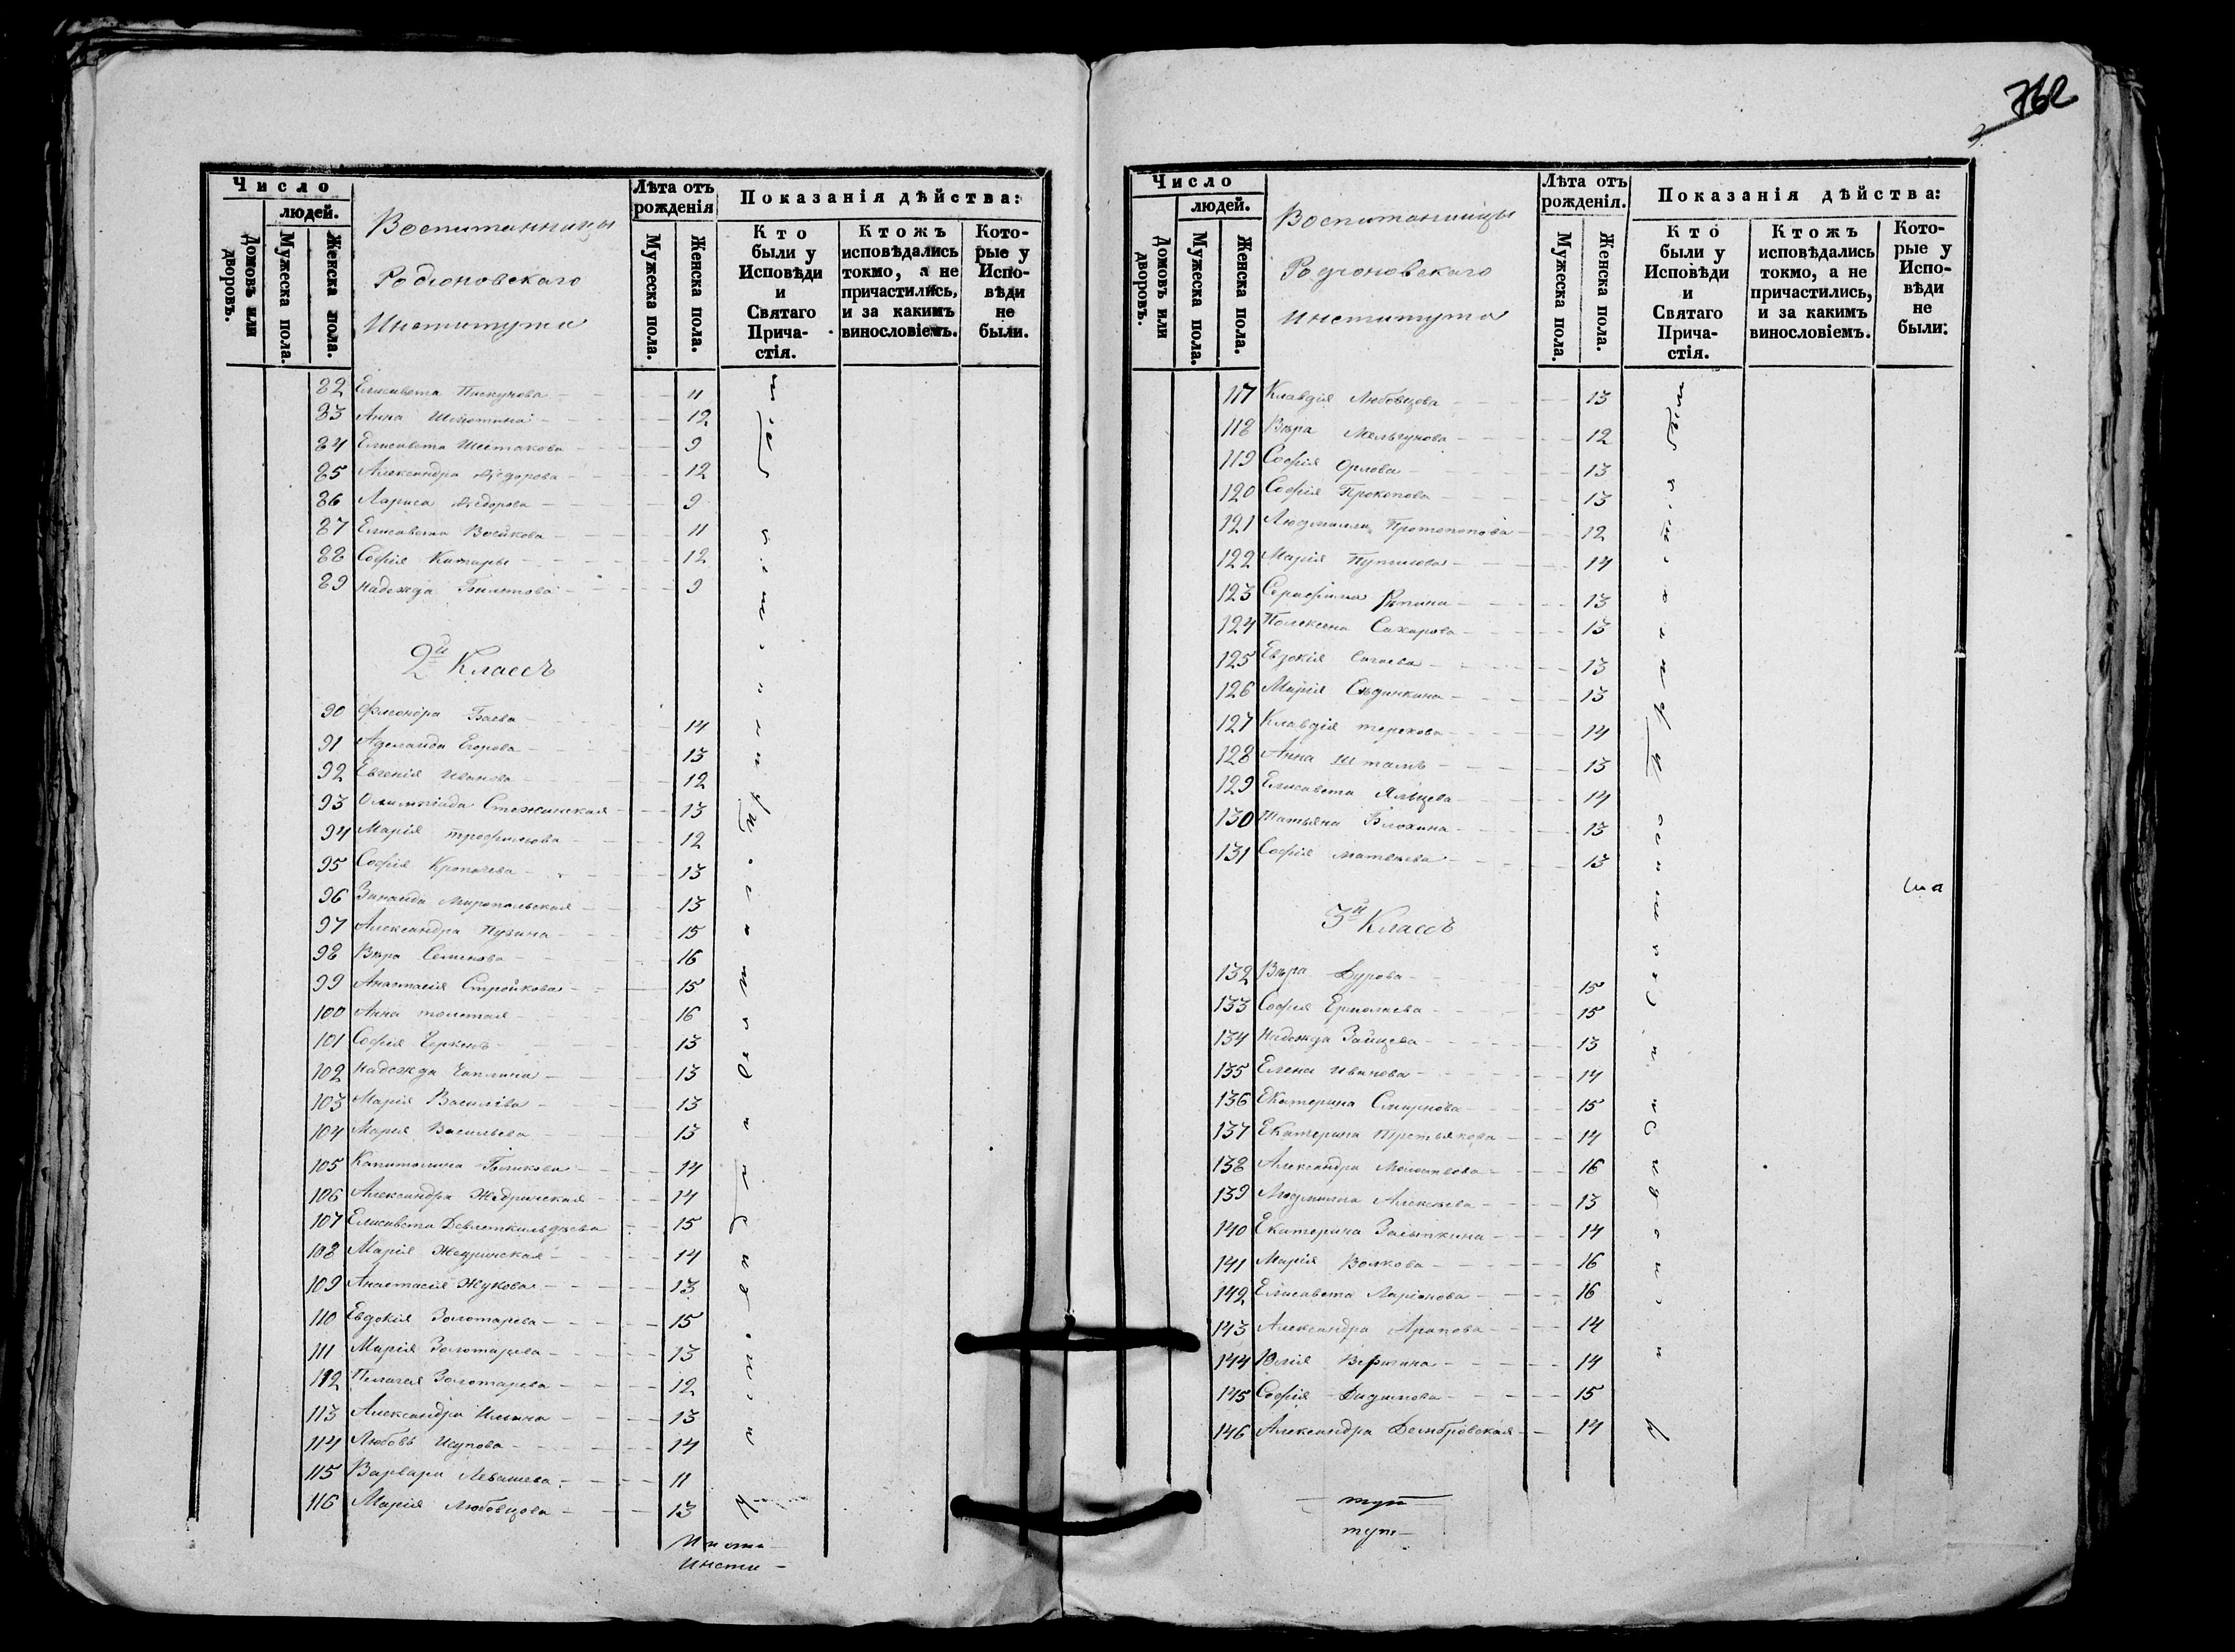 762
Число
людей.
Домовъ или дворовъ.
Мужеска пола.
Женска пола.
Воспитанницы
Родіоновскаго
Института
Лѣта отъ
рожденія
Мужеска пола.
Женска пола.
Показанія дѣйства:
Кто
были у
Исповѣди
и
Святаго
Прича-
стія.
Ктожъ
исповѣдались
токмо, а не
причастились,
и за какимъ
винословіемъ.
Кото-
рые у
Испо-
вѣди
не
были.
82 Елисавета Пискунова 11
83 Анна 12
84 Елисавета Шестакова 9
85 Александра Ѳедорова 12
86 Лариса Ѳедорова 9
87 Елисавета Войкова 11
88 Софія Китары 12
89 Надежда 9
2й Классъ
90 Баева 14
91 Аделаида Егорова 13
92 Евгенія Иванова 12
93 Олимпіада Стежинская 13
94 Марія Трофимова 12
95 Софія Кропачева 13
96 Зинаида Миропольская 13
97 Александра Пузина 15
98 Вѣра Семенова 16
99 Анастасія Стройкова 15
100 Анна Толстая 16
101 Софія 13
102 Надежда Чаплина 13
103 Марія 13
104 Марія Васильева 13
105 Капитолина Голикова 14
106 Александра Жедринская 14
107 Елисавета Девлеткильдѣева 15
108 Марія Жедринская 14
109 Анастасія Жукова 13
110 Евдокія Золотарева 15
111 Марія Золотарева 13
112 Пелагея Золотарева 12
113 Александра Ильина 13
114 Любовь Юсупова 14
115 Варвара Левашева 11
116 Марія Любовцова 13
Инсти
Инсти
Число
людей.
Домовъ или дворовъ.
Мужеска пола.
Женска пола.
Воспитанницы
Родіоновскаго
Института
Лѣта отъ
рожденія.
Мужеска пола.
Женска пола.
Показанія дѣйства:
Кто
были у
Исповѣди
и
Святаго
Прича-
стія.
Ктожъ
исповѣдались
токмо, а не
причастились,
и за какимъ
винословіемъ.
Кото-
рые у
Испо-
вѣди
не
были:
117 Клавдія Любовцова 13
118 Вѣра Мельгунова 12
119 Софія Орлова 13
120 Софія Прокопова 13
121 Людмилла Протопопова 12
122 Марія Путилова 14
123 Серафима Рѣпина 13
124 Поликсена Сахарова 13
125 Евдокія 13
126 Марія Сѣдинкина 13
127 Клавдія Терехова 14
128 Анна Штамъ 13
129 Елисавета Яльцева 14
130 Татьяна Блохина 13
131 Софія Матвѣева 13
3й Классъ
132 Вѣра Дурова 15
133 Софія Ермолаева 15
134 Надежда Зайцева 13
135 Елена Иванова 14
136 Екатерина Смирнова 15
137 Екатерина Третьякова 14
138 Александра 16
139 Людмилла Алексѣева 13
140 Екатерина Засыпкина 14
141 Марія Волкова 16
142 Елисавета Ларіонова 16
143 Александра Арапова 14
144 Юлія Веригина 14
145 Софія Дидимова 15
146 Александра Домбровская 14
тут
тут